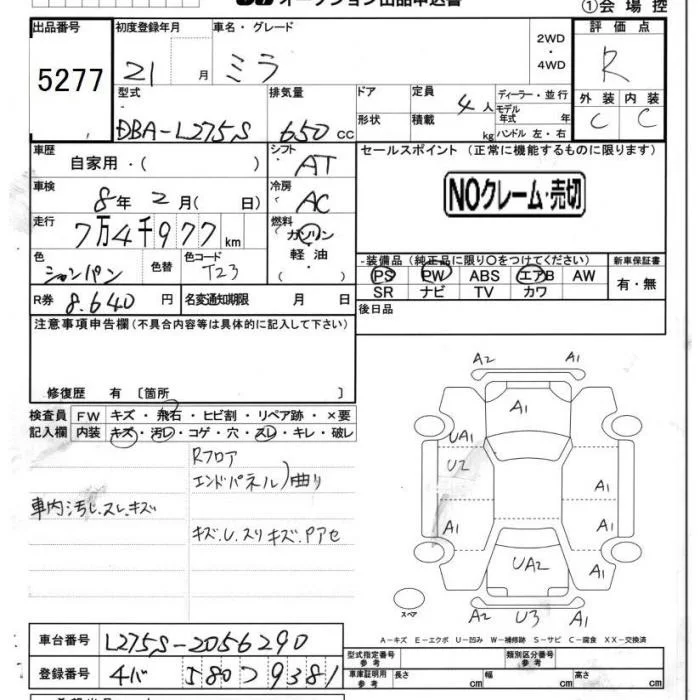 オークション出品申込書
①会場控
出品番号 初度登録年月 車名・グレード 2WD ・ 4WD 評価点
5277 21 月 ミラ R
型式 排気量 ドア 定員 4人 ディーラー・並行 外装 内装
DBA-L275S 650 cc 形状 積載 kg モデル年式 年 ハンドル 左・右 C C
車歴 自家用・( ) シフト AT セールスポイント (正常に機能するものに限ります)
車検 8年 2月( 日) 冷房 AC NOクレーム・売切
走行 7万4千977 km 燃料 ガソリン 軽油 ( )
色 シャンパン 色替 色コード T23
-装備品 (純正品に限り○をつけてください) 新車保証書
PS PW ABS エアB AW 有・無
SR ナビ TV カワ
R券 8.640 円 名変通知期限 月 日 後日品
注意事項申告欄(不具合内容等は具体的に記入して下さい)
修復歴 有 〔箇所 〕
検査員 FW キズ・飛石・ヒビ割・リペア跡・×要
記入欄 内装 キズ・汚レ・コゲ・穴・スレ・キレ・破レ
Rフロア
エンドパネル)曲り
車内汚し.スレ.キズ
キズ.U.スリキズ.Pアセ
A2 A1
A1
UA1
U2
A1 A1
A1 A1
UA2 A1
A2 U3 A1
スペア
A-キズ E-エクボ U-凹み W-補修跡 S-サビ C-腐食 XX-交換済
車台番号 L275S-2056290 型式指定番号 参考 類別区分番号 参考
登録番号 車庫証明用 参考 長さ cm 幅 cm 高さ cm